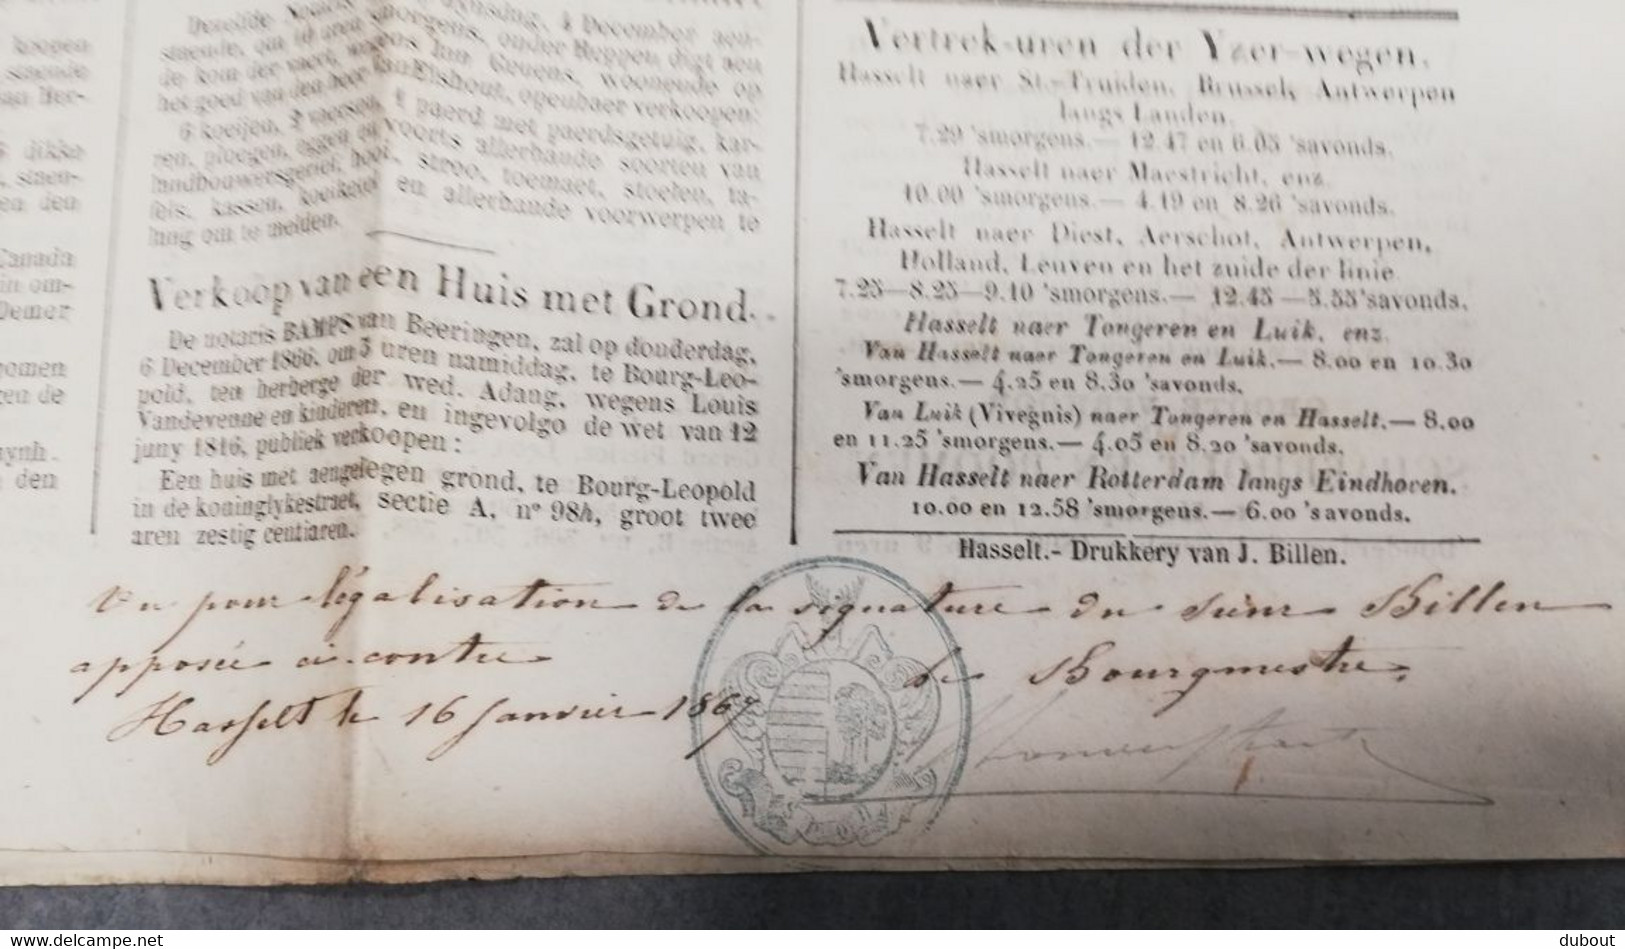 koopen
staende
dikke
den
Canada
in om-
Demer
nomen
gen de
ynh.
den
Dinsdag, 4 December aen-
staende, om 10 uren smorgens, onder Heppen digt aen
de kom der woonende op
het goed van den heer VanElshout, openbaer verkoopen:
6 koeijen, 2 veersen, 1 paerd met paerdsgetuig, kar-
ren, ploegen, eggen en voorts allerhande soorten van
landbouwersgerief, hooi, stroo, toemaet, stoelen, ta-
fels, kassen, koeiketel en allerhande voorwerpen te
lang om te melden.
Verkoop van een Huis met Grond.
De notaris BAMPS van Beeringen, zal op donderdag,
6 December 1866, om 3 uren namiddag, te Bourg-Leo-
pold, ten herberge der wed. Adang, wegens Louis
Vandevenne en kinderen, en ingevolge de wet van 12
juny 1816, publiek verkoopen:
Een huis met aengelegen grond, te Bourg-Leopold
in de koninglykestraet, sectie A, n° 98h, groot twee
aren zestig centiaren.
Vertrek-uren der Yzer-wegen.
Hasselt naer St.-Truiden, Brussel, Antwerpen
langs Landen.
7.29 'smorgens.— 12.47 en 6.05 'savonds.
Hasselt naer Maestricht, enz.
10.00 'smorgens.— 4.19 en 8.26 'savonds.
Hasselt naer Diest, Aerschot, Antwerpen,
Holland, Leuven en het zuide der linie
7.25—8.25—9.10 'smorgens.— 12.45—5.55 'savonds.
Hasselt naer Tongeren en Luik, enz.
Van Hasselt naer Tongeren en Luik.— 8.00 en 10.30
'smorgens.— 4.25 en 8.30 'savonds.
Van Luik (Vivegnis) naer Tongeren en Hasselt.— 8.00
en 11.25 'smorgens.— 4.05 en 8.20 'savonds.
Van Hasselt naer Rotterdam langs Eindhoven.
10.00 en 12.58 'smorgens.— 6.00 'savonds.
Hasselt.- Drukkery van J. Billen.
Vu pour légalisation de la signature du Sieur Billen
apposée ci-contre
Hasselt le 16 Janvier 1867
Le Bourgmestre,
dubout